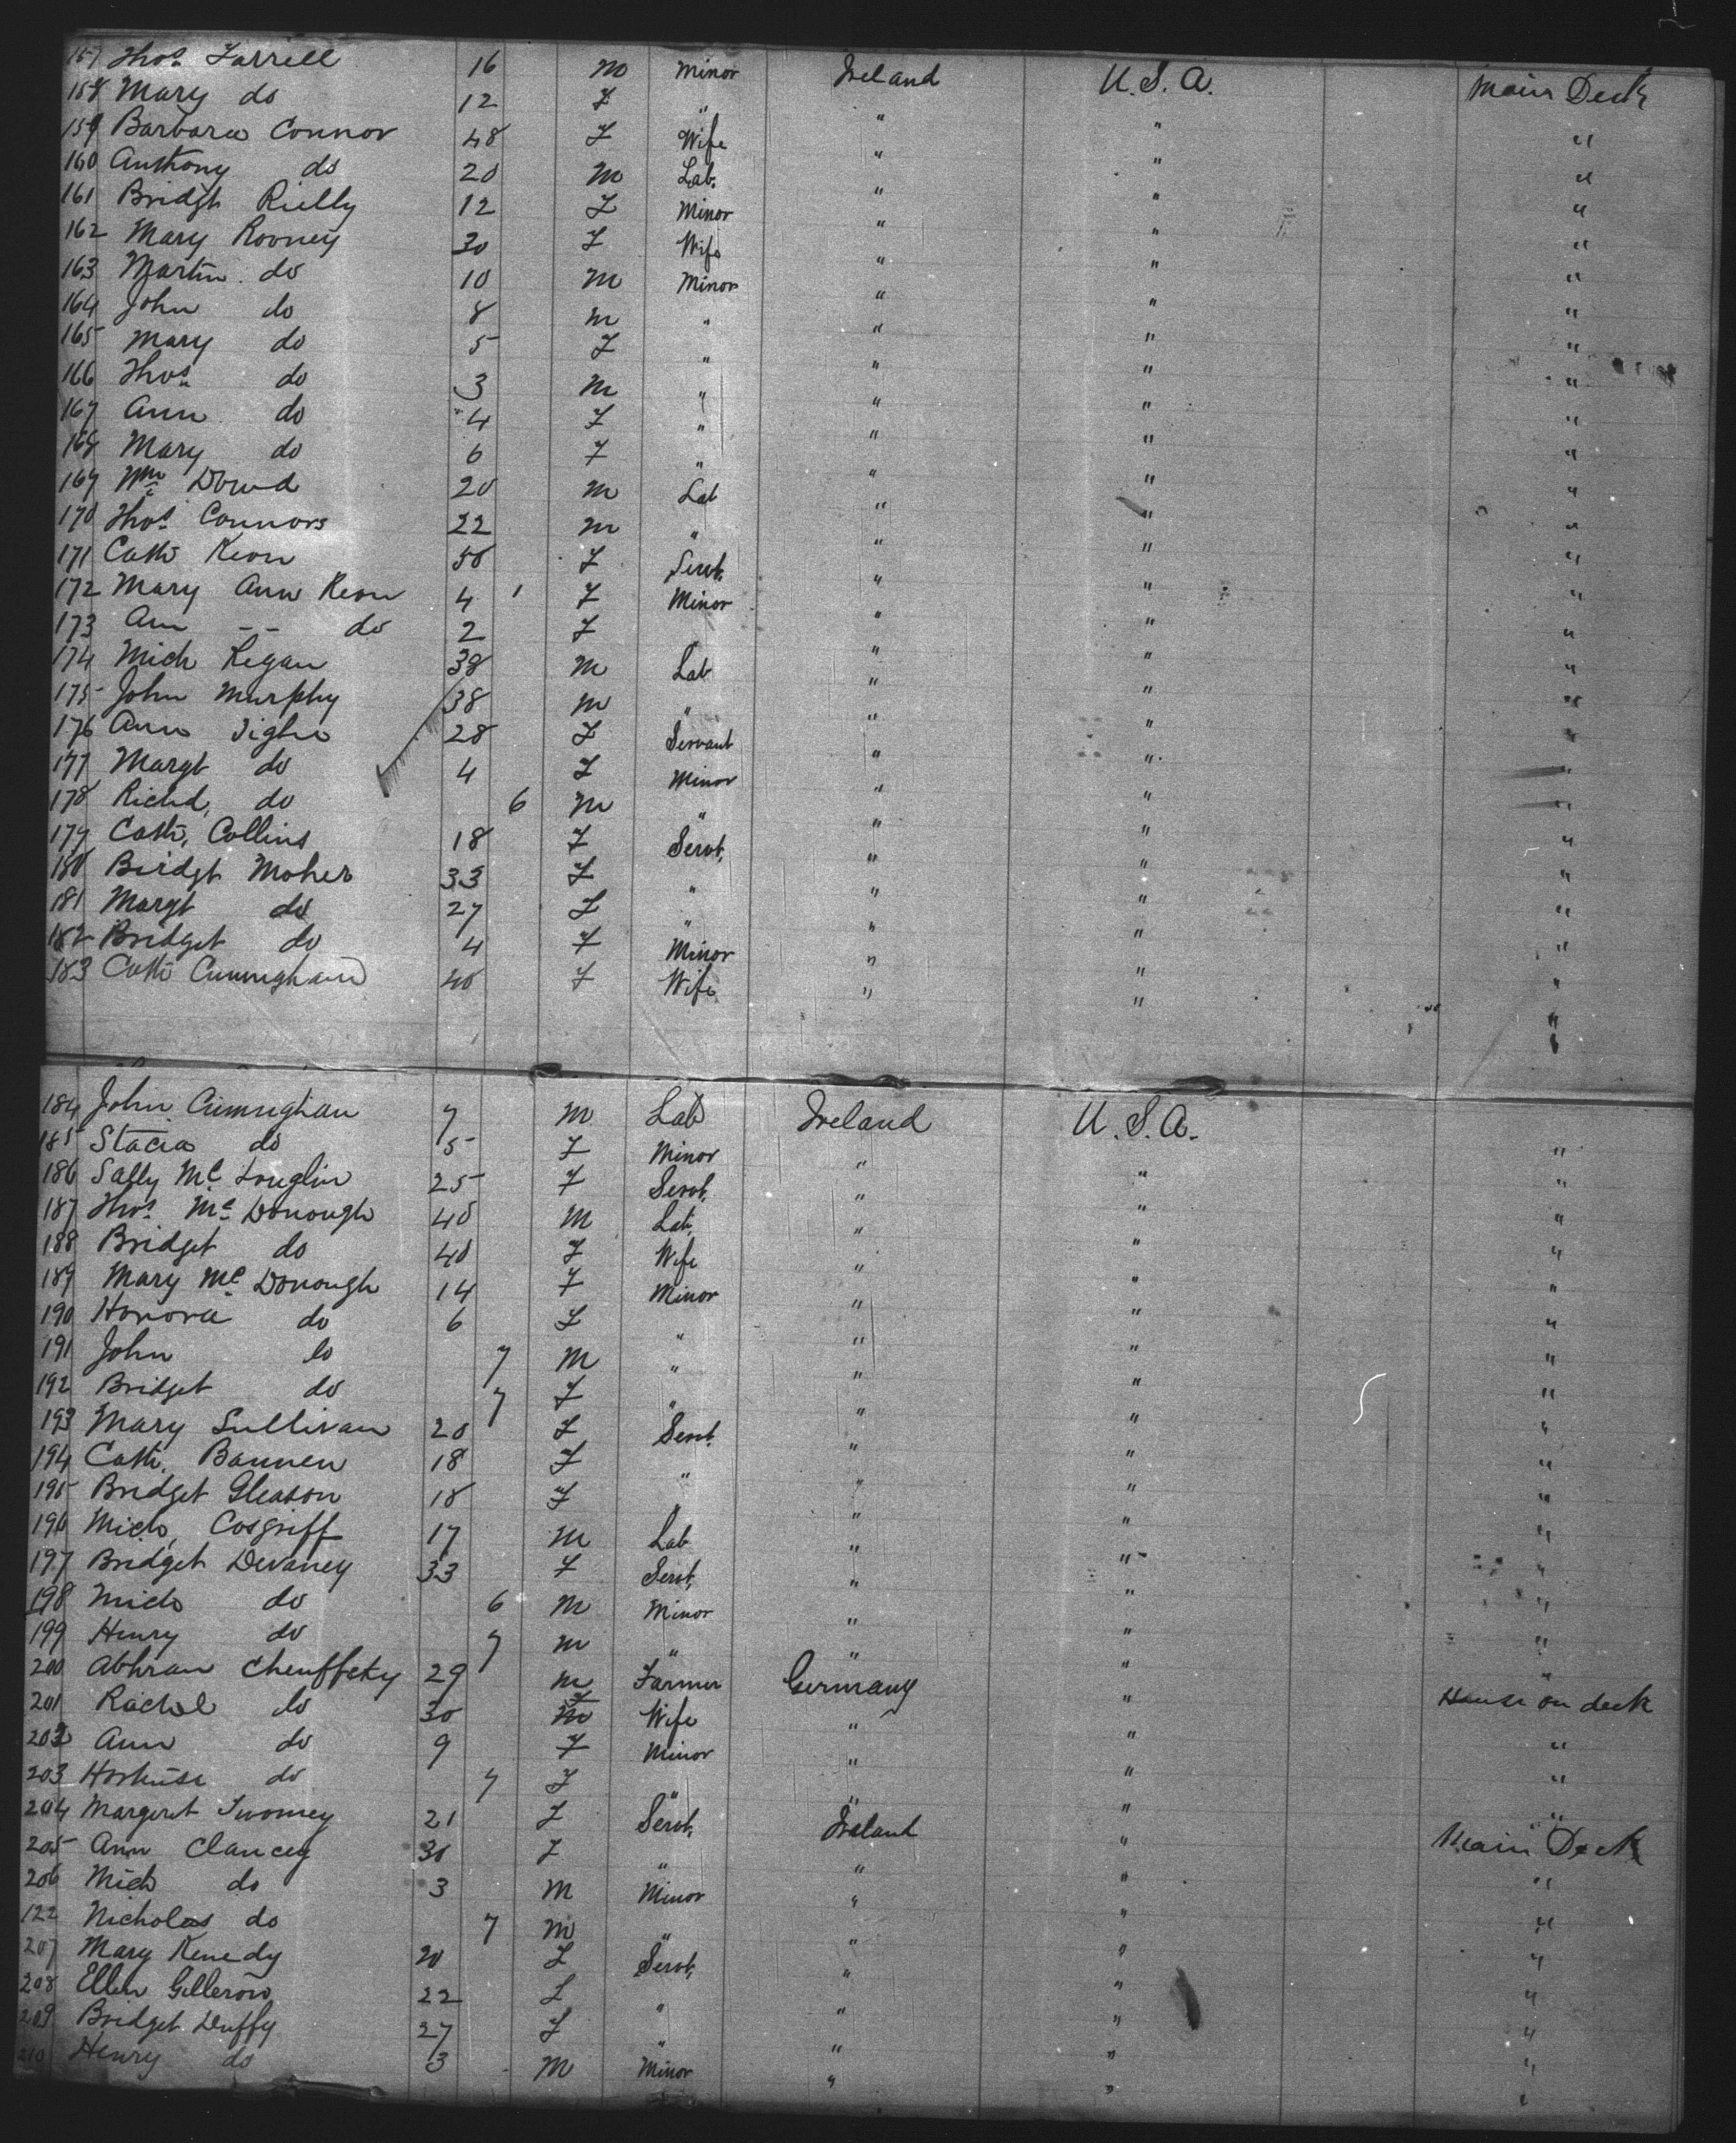 157 Thos. Farrell 16 M Minor Ireland U.S.A. Main Deck
158 Mary do 12 F " " " "
159 Barbara Connor 48 F Wife " " "
160 Anthony do 20 M Lab. " " "
161 Bridgt Rielly 12 F Minor " " "
162 Mary Rooney 30 F Wife " " "
163 Martin do 10 M Minor " " "
164 John do 8 M " " " "
165 Mary do 5 F " " " "
166 Thos. do 3 M " " " "
167 Ann do 4 F " " " "
168 Mary do 6 F " " " "
169 Wm Dowd 20 M Lab " " "
170 Thos. Connors 22 M " " " "
171 Cath Keon 50 F Servt. " " "
172 Mary Ann Keon 4 F Minor " " "
173 Ann -- do 2 F " " " "
174 Mich Regan 38 M Lab " " "
175 John Murphy 38 M " " " "
176 Ann Tighe 28 F Servant " " "
177 Margt do 4 F Minor " " "
178 Richd. do 6 M " " " "
179 Cath. Collins 18 F Servt. " " "
180 Bridgt Moher 33 F " " " "
181 Margt do 27 F " " " "
182 Bridget do 4 F Minor " " "
183 Cath Cunnigham 40 F Wife " " "
184 John Cunnighan 7 M Lab Ireland U.S.A. "
185 Stacia do 5 F Minor " " "
186 Sally McLouglin 25 F Servt. " " "
187 Thos. McDonough 40 M Lab. " " "
188 Bridget do 40 F Wife " " "
189 Mary McDonough 14 F Minor " " "
190 Honora do 6 F " " " "
191 John do 7 M " " " "
192 Bridget do 7 F " " " "
193 Mary Sullivan 20 F Servt. " " "
194 Cath. Bannen 18 F " " " "
195 Bridget Gleason 18 F " " " "
196 Mich. Cosgriff 17 M Lab " " "
197 Bridget Devaney 33 F Servt. " " "
198 Mich do 6 M Minor " " "
199 Henry do 7 M " " " "
200 Abhram 29 M Farmer Germany " House on deck
201 Rachel do 30 F Wife " " "
202 Ann do 9 F Minor " " "
203 do 7 F " " " "
204 Margeret Twomey 21 F Servt. Ireland " Main Deck
205 Ann Clancey 30 F " " " "
206 Mich do 3 M Minor " " "
122 Nicholas do 7 M " " " "
207 Mary Kenedy 20 F Servt. " " "
208 Ellen Gilleron 22 F " " " "
209 Bridget Duffy 27 F " " " "
210 Henry do 3 M Minor " " "